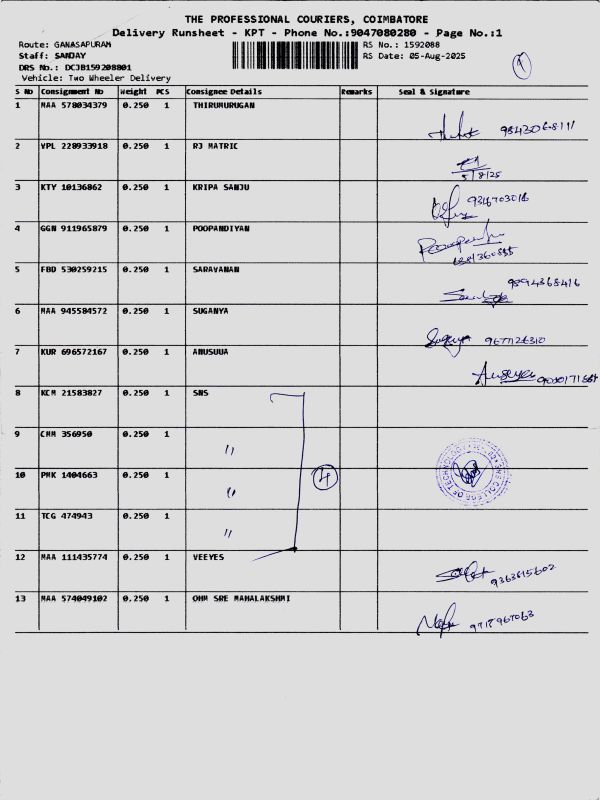 THE PROFESSIONAL COURIERS, COIMBATORE
Delivery Runsheet - KPT - Phone No.:9047080280 - Page No.:1
Route: GANASAPURAM RS No.: 1592088
Staff: SANJAY RS Date: 05-Aug-2025
DRS No.: DCJB159208801
Vehicle: Two Wheeler Delivery
1
S No Consignment No Weight PCS Consignee Details Remarks Seal & Signature
1 MAA 578034379 0.250 1 THIRUMURUGAN
2 VPL 228933918 0.250 1 RJ MATRIC
5/8/25
3 KTY 10136862 0.250 1 KRIPA SANJU
934703016
4 GGN 911965879 0.250 1 POOPANDIYAN
5 FBD 530259215 0.250 1 SARAVANAN
9894368416
6 MAA 945584572 0.250 1 SUGANYA
Suganya 9677126310
7 KUR 696572167 0.250 1 ANUSUUA
Anusuya
8 KCM 21583827 0.250 1 SNS
9 CMM 356950 0.250 1 "
10 PMK 1404663 0.250 1 " 4
SNS COLLEGE OF TECHNOLOGY
11 TCG 474943 0.250 1 "
12 MAA 111435774 0.250 1 VEEYES
9363615602
13 MAA 574049102 0.250 1 OHM SRE MAHALAKSHMI